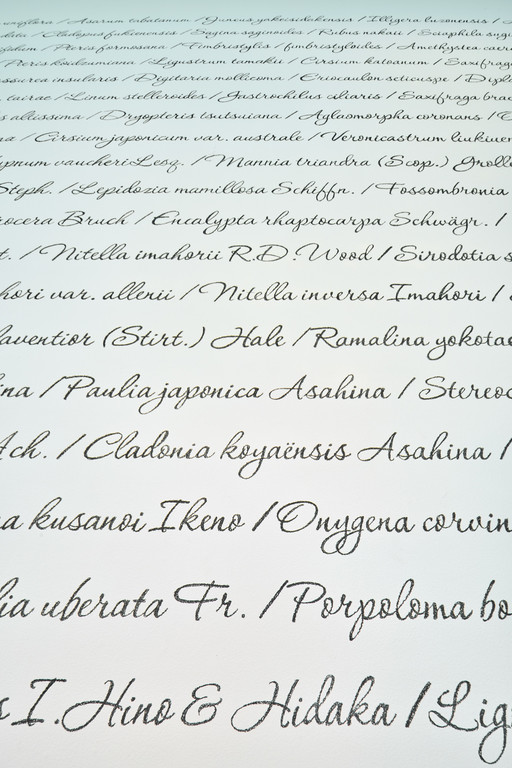 / Asarum tabatanum / Juncus yakeisidakensis / Illigera luzonensis /
/ Cladopus fukienensis / Sagina saginoides / Rubus nakaii / Sciaphila
/ Pieris formosana / Fimbristylis / fimbristyloides / Amethystea
/ Pieris koidzumiana / Ligustrum tamakii / Cirsium katoanum /
insularis / Digitaria mollicoma / Eriocaulon seticuspe /
tairae / Linum stelleroides / Gastrochilus ciliaris / Saxifraga
altissima / Dryopteris tsutsuiana / Aglaomorpha coronans /
na / Cirsium japonicum var. australe / Veronicastrum liukiuen
ypnum vaucheri Lesq. / Mannia triandra (Scop.) Grolle
Steph. / Lepidozia mamillosa Schiffn. / Fossombronia
rocera Bruch / Encalypta rhaptocarpa Schwägr. /
t. / Nitella imahorii R.D. Wood / Sirodotia s
hori var. allenii / Nitella inversa Imahori /
laventior (Stirt.) Hale / Ramalina yokotae
ina / Paulia japonica Asahina / Stereoc
Ach. / Cladonia koyaënsis Asahina /
a kusanoi Ikeno / Onygena corvin
lia uberata Fr. / Porpoloma bo
s I. Hino & Hidaka / Lig